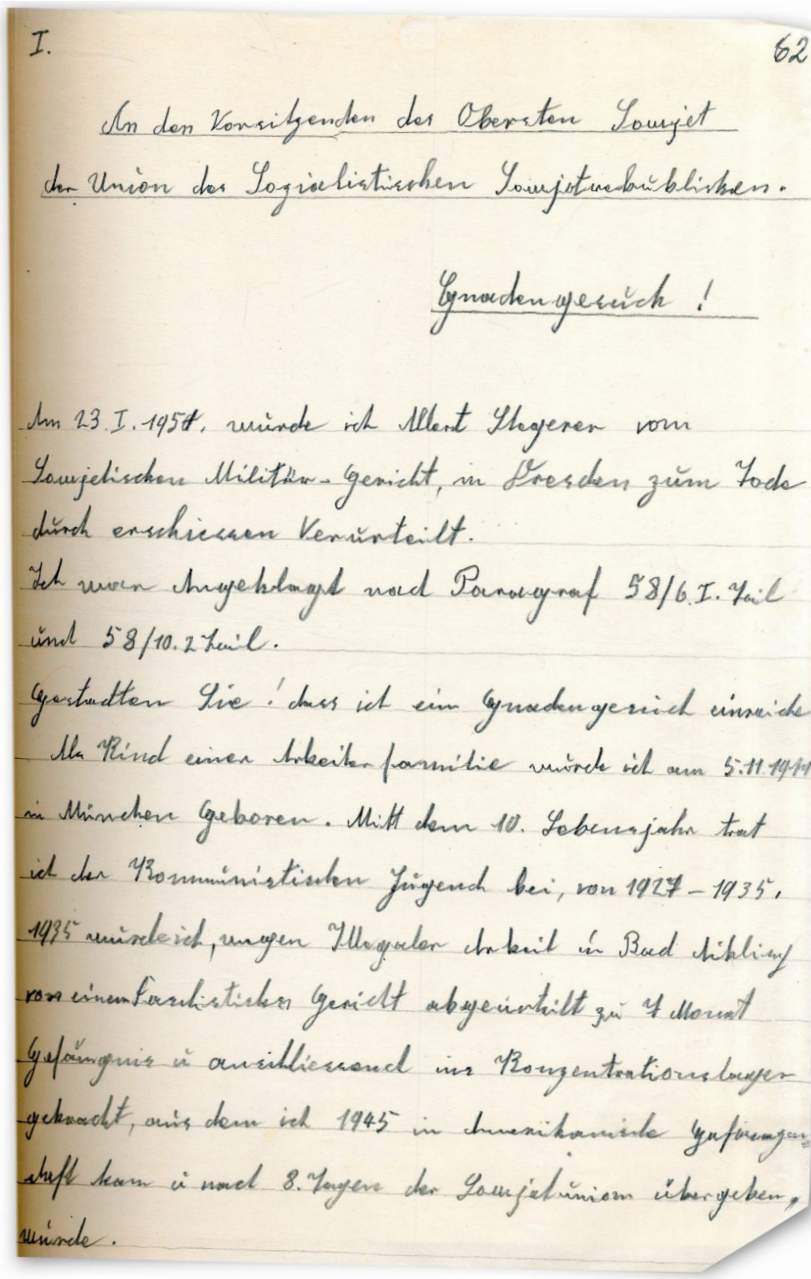 I. 62
An den Vorsitzenden des Obersten Sowjet
der Union der Sozialistischen Sowjetrebubliken.
Gnadengesuch !
Am 23. I. 1951. wurde ich Albert Stegerer vom
Sowjetischen Militär-Gericht, in Dresden zum Tode
durch erschiessen Verurteilt.
Ich war Angeklagt nach Paragraf 58/6. I. Teil
und 58/10. 2 Teil.
Gestadten Sie ! dass ich ein Gnadengesuch einreiche
Als Kind einer Arbeiterfamilie wurde ich am 5.11.1911
in München Geboren. Mitt dem 10. Lebensjahr trat
ich der Kommunistischen Jugend bei, von 1927 – 1935.
1935 wurde ich, wegen Illegaler Arbeit in Bad Aibling
von einem Faschistichen Gericht abgeurteilt zu 7 Monat
Gefängnis u anschliessend ins Konzentrationslager
gebracht, aus dem ich 1945 in Amerikanische Gefangen=
schaft kam u nach 8. Tagen der Sowjetunion übergeben,
wurde.